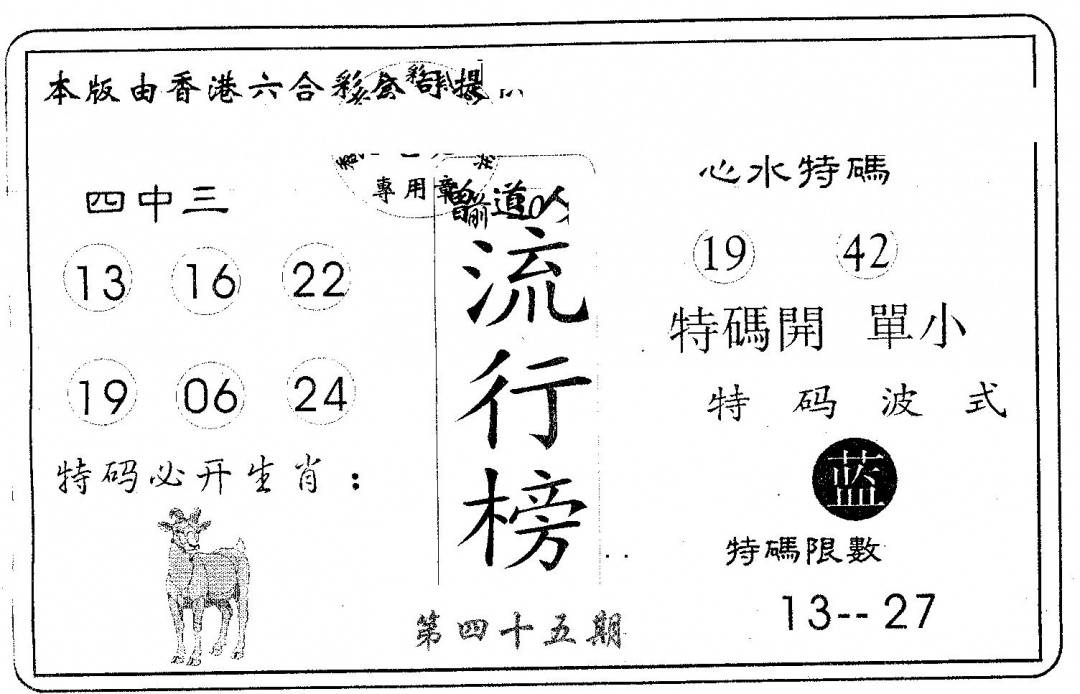 本版由香港六合彩公司提
專用章
曾道人
流行榜
第四十五期
四中三
13 16 22
19 06 24
特码必开生肖：
心水特碼
19 42
特碼開 單小
特码波式
蓝
特碼限數
13-- 27